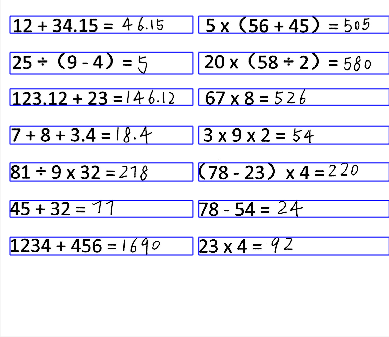 12 + 34.15 = 46.15
5 x (56 + 45) = 505
25 ÷ (9 - 4) = 5
20 x (58 ÷ 2) = 580
123.12 + 23 = 146.12
67 x 8 = 526
7 + 8 + 3.4 = 18.4
3 x 9 x 2 = 54
81 ÷ 9 x 32 = 278
(78 - 23) x 4 = 220
45 + 32 = 77
78 - 54 = 24
1234 + 456 = 1690
23 x 4 = 92